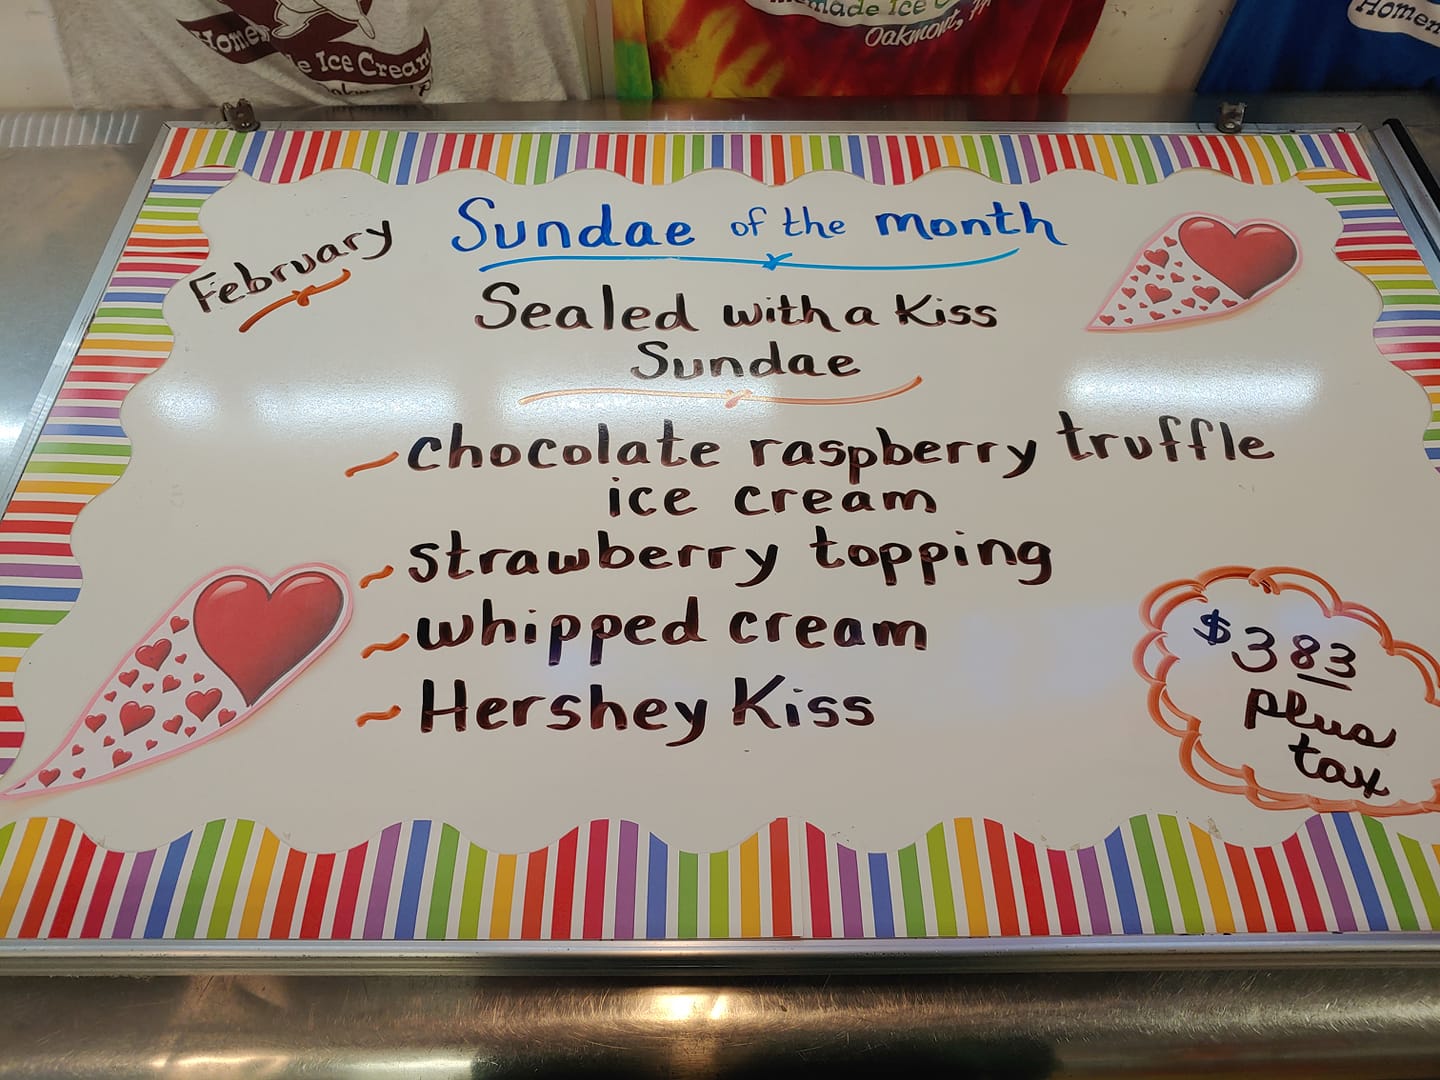 Home
e Ice Cream
made Ice
Oakmont,
Homem
February
Sundae of the month
Sealed with a Kiss
Sundae
~ chocolate raspberry truffle
ice cream
~ strawberry topping
~ whipped cream
~ Hershey Kiss
$3 83
plus
tax